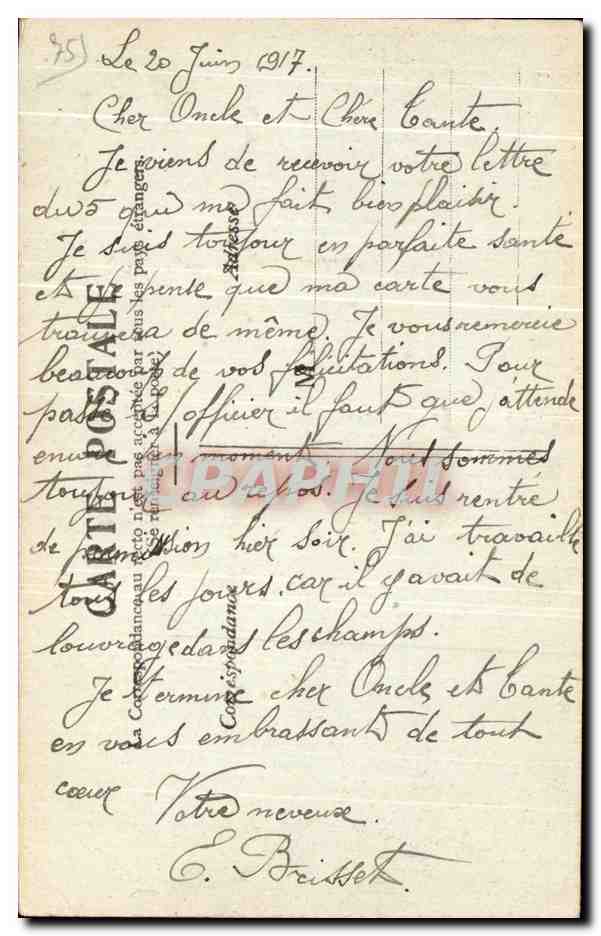 75)
Le 20 Juin 1917.
Cher Oncle et Chère Tante.
Je viens de recevoir votre lettre
du 5 qui ma fait bien plaisir.
Je suis toujour en parfaite santé
et je pense que ma carte vous
trouvera de même. Je vous remercie
beaucoup de vos félicitations. Pour
passé officier il faut que j'attende
encore un moment. Nous sommes
toujours au repos. Je suis rentré
de permission hier soir. J'ai travaillé
tous les jours, car il y avait de
louvrage dans les champs.
Je termine cher Oncle et Tante
en vous embrassant de tout
cœur Votre neveux.
E. Brisset.
CARTE POSTALE
La Correspondance au recto n'est pas acceptée par tous les pays étrangers.
(Se renseigner à la poste)
Correspondance
Adresse
M
CPARAMA